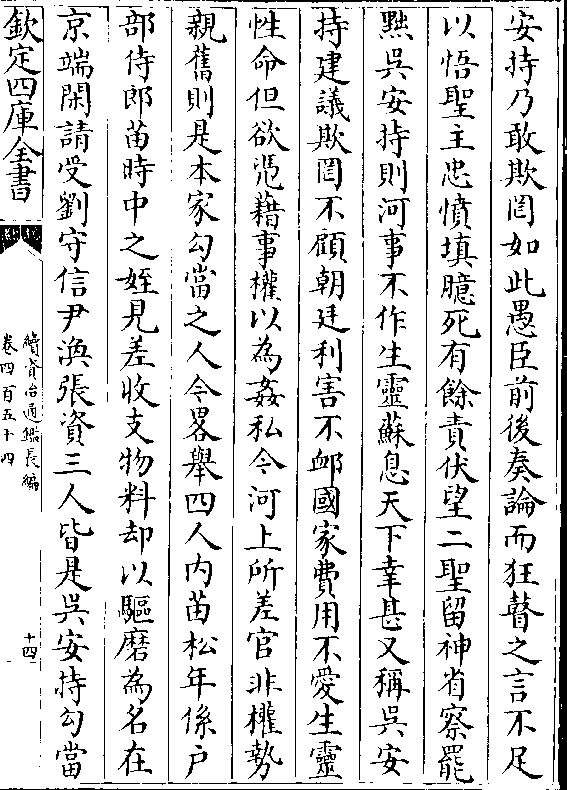 安持乃敢欺罔如此愚臣前後奏論而狂瞽之言不足
以悟聖主忠憤填臆死有餘責伏望二聖留神省察罷
黜吳安持則河事不作生靈蘇息天下幸甚又稱吳安
持建議欺罔不顧朝廷利害不䘏國家費用不愛生靈
性命但欲凴藉事權以為姦私今河上所差官非權勢
親舊則是本家勾當之人今畧舉四人内苗松年係户
部侍郎苗時中之姪見差收支物料却以驅磨為名在
京端閑請受劉守信尹渙張資三人皆是吳安持勾當
欽定四庫全書
續資治通鑑長編
卷四百五十四
十四